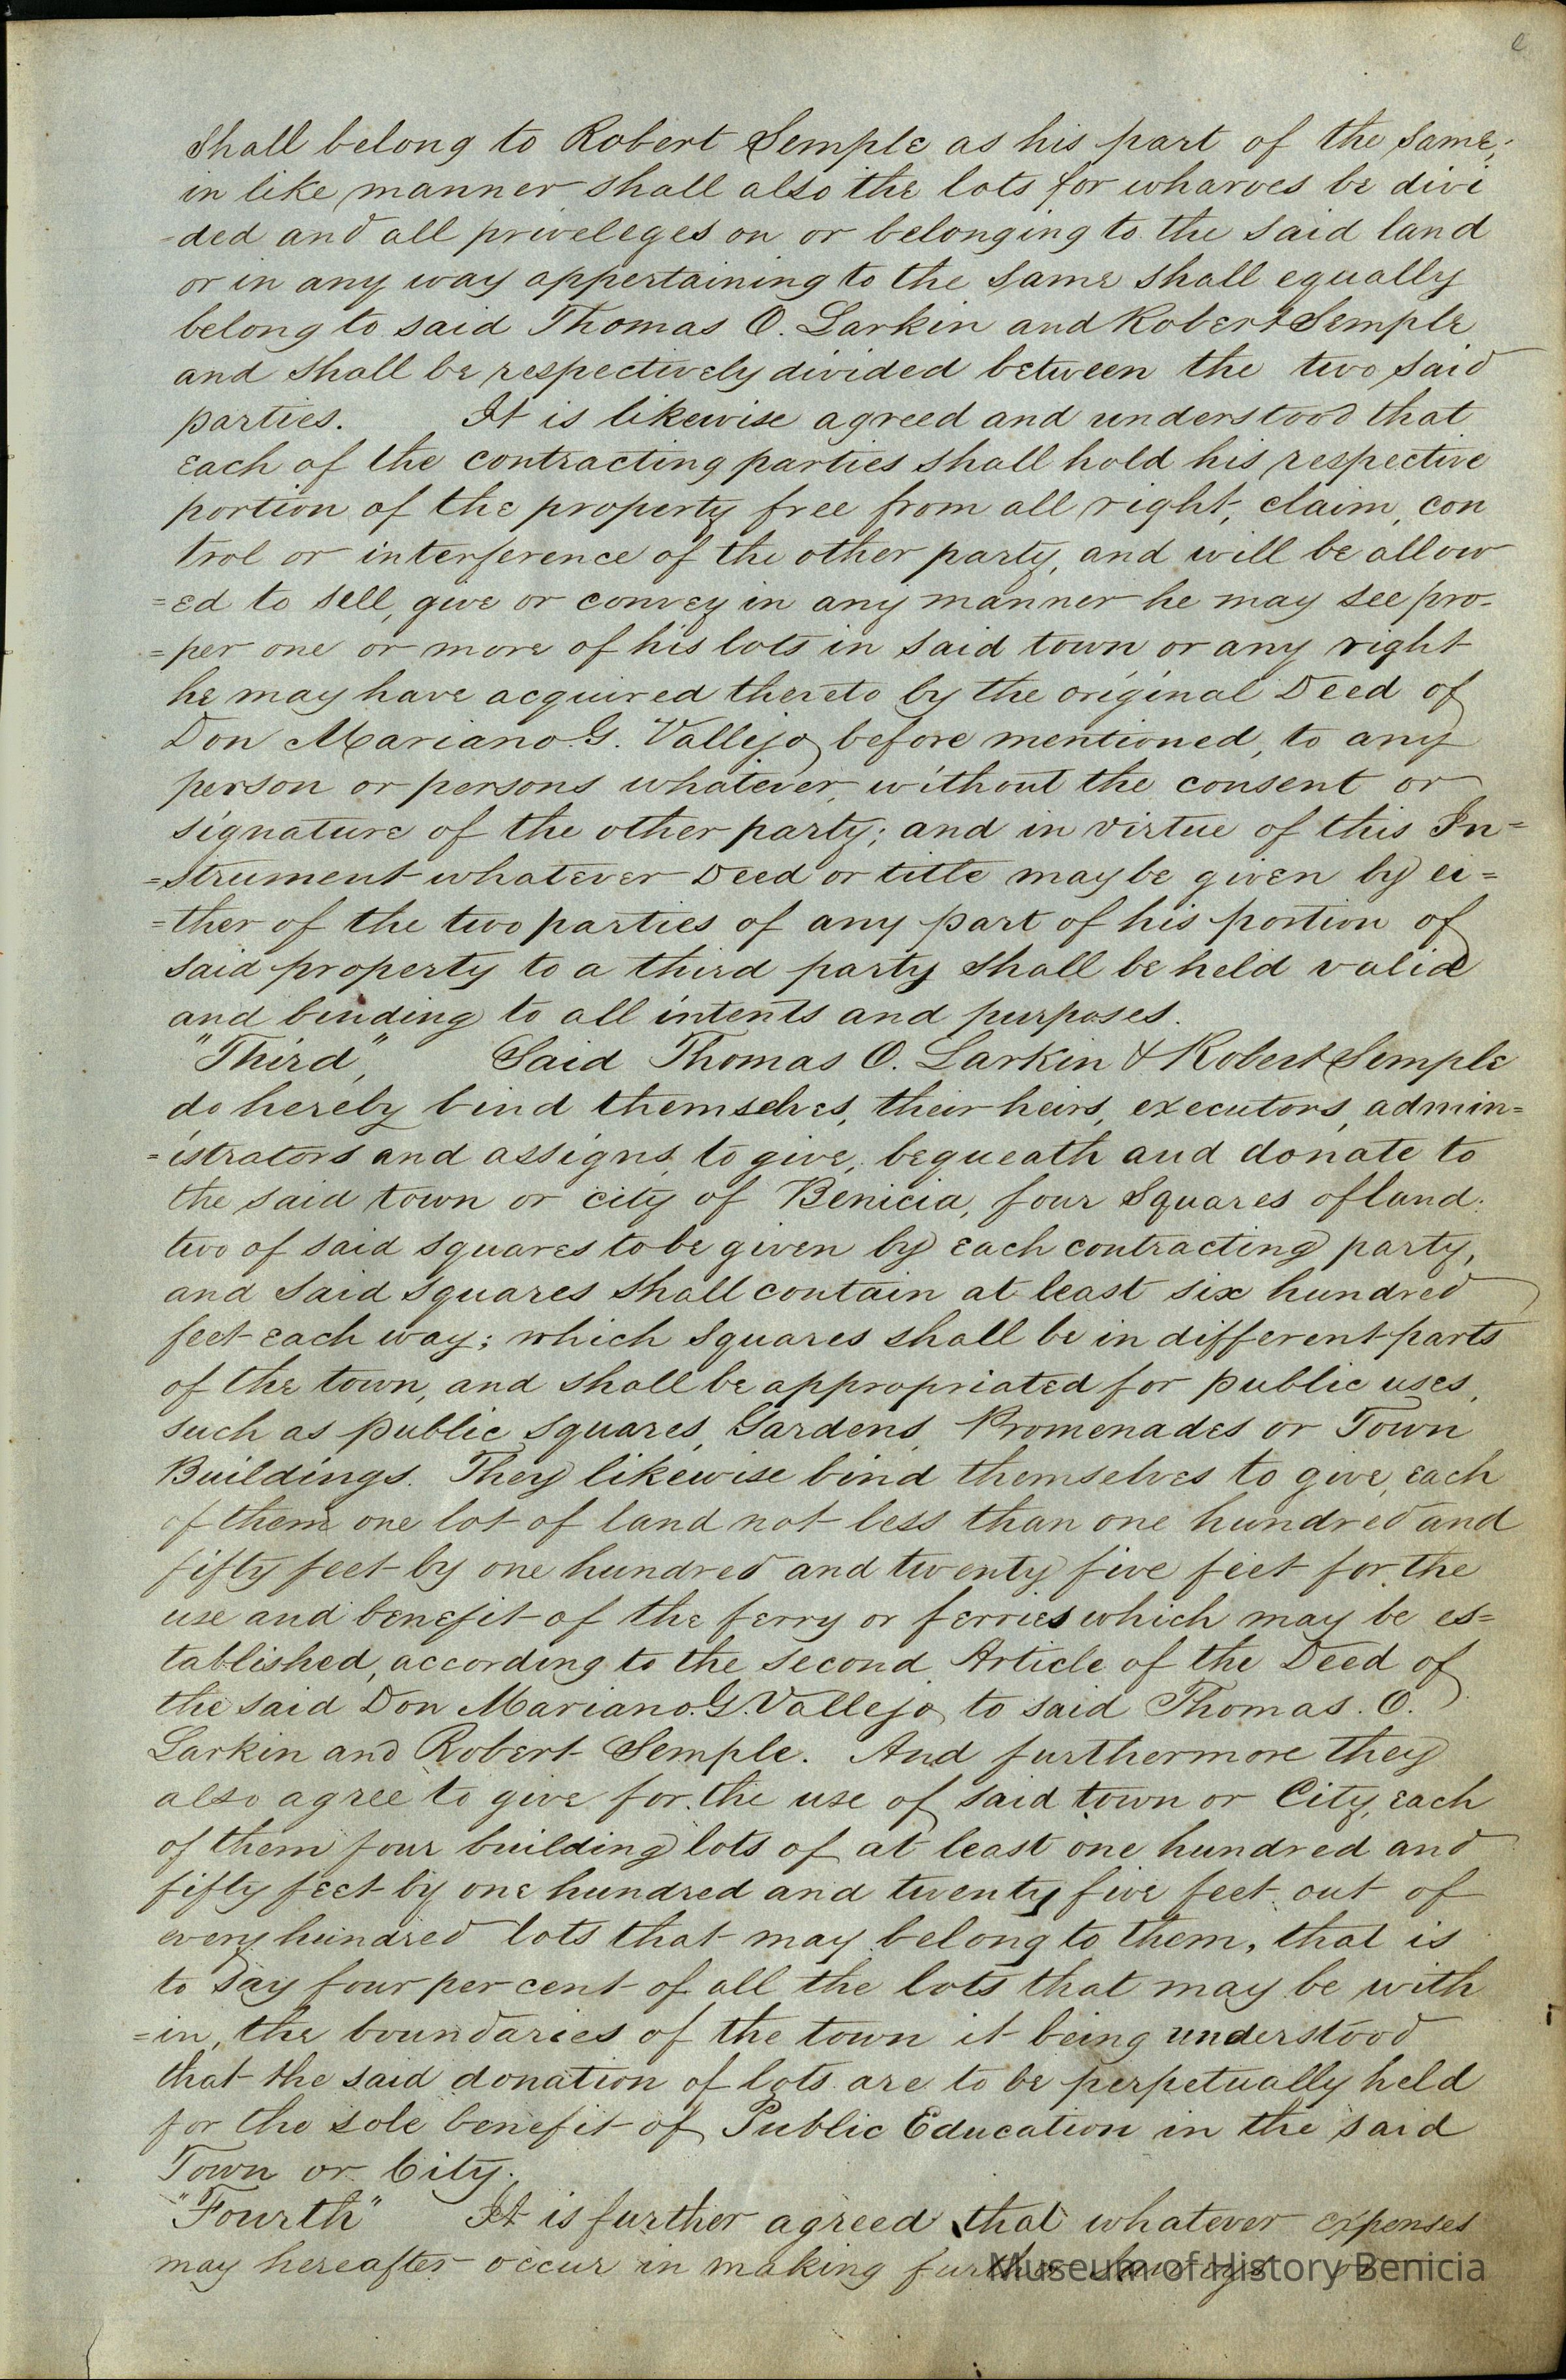 Shall belong to Robert Semple as his part of the same;
in like manner shall also the lots for wharves be divi
-ded and all priveleges on or belonging to the said land
or in any way appertaining to the same shall equally
belong to said Thomas O. Larkin and Robert Semple
and shall be respectively divided between the two said
parties. It is likewise agreed and understood that
each of the contracting parties shall hold his respective
portion of the property free from all right, claim, con
trol or interference of the other party, and will be allow
=ed to sell, give or convey in any manner he may see pro-
=per one or more of his lots in said town or any right
he may have acquired thereto by the original Deed of
Don Mariano G. Vallejo before mentioned, to any
person or persons whatever, without the consent or
signature of the other party; and in virtue of this In=
=strument whatever Deed or title may be given by ei=
=ther of the two parties of any part of his portion of
said property to a third party shall be held valid
and binding to all intents and purposes.
"Third", Said Thomas O. Larkin & Robert Semple
do hereby bind themselves, their heirs, executors, admin=
=istrators and assigns, to give, bequeath and donate to
the said town or city of Benicia, four Squares of land:
two of said squares to be given by each contracting party,
and said squares shall contain at least six hundred
feet each way; which squares shall be in different parts
of the town, and shall be appropriated for public uses,
such as public squares, Gardens, Promenades or Town
Buildings. They likewise bind themselves to give, each
of them one lot of land not less than one hundred and
fifty feet by one hundred and twenty five feet for the
use and benefit of the ferry or ferries which may be es=
tablished, according to the second Article of the Deed of
the said Don Mariano G. Vallejo to said Thomas. O.
Larkin and Robert Semple. And furthermore they
also agree to give for the use of said town or City, each
of them four building lots of at least one hundred and
fifty feet by one hundred and twenty five feet out of
every hundred lots that may belong to them, that is
to say four per cent of all the lots that may be with
=in, the boundaries of the town it being understood
that the said donation of lots are to be perpetually held
for the sole benefit of Public Education in the said
Town or City.
"Fourth" It is further agreed that whatever expenses
may hereafter occur in making further surveys or
Museum of History Benicia